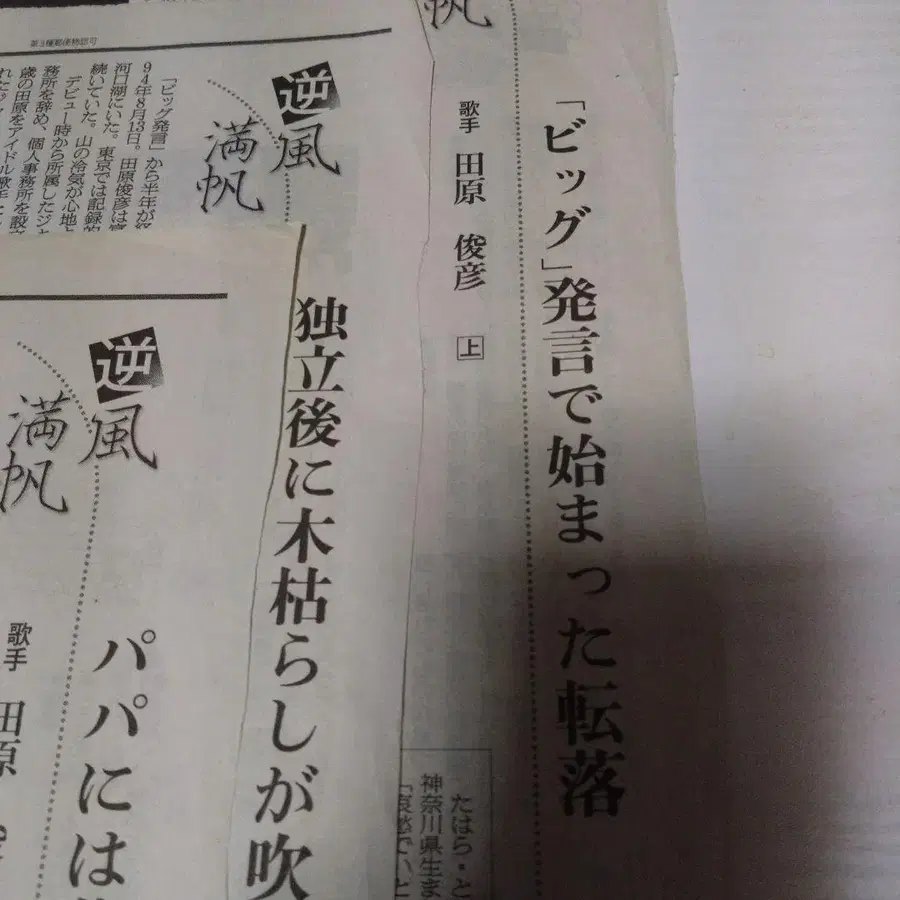 帆
「ビッグ」発言で始まった転落
歌手 田原 俊彦 上
たはら・と
神奈川県生ま
「哀愁でいと
第3種郵便物認可
逆風
満帆
「ビッグ発言」から半年が経
94年8月13日。田原俊彦は
河口湖にいた。東京では記録的
続いていた。山の冷気が心地
デビュー時から所属したジ
務所を辞め、個人事務所を設
歳の田原をアイドル歌手
独立後に木枯らしが吹
逆風
満帆
パパには
歌手 田原